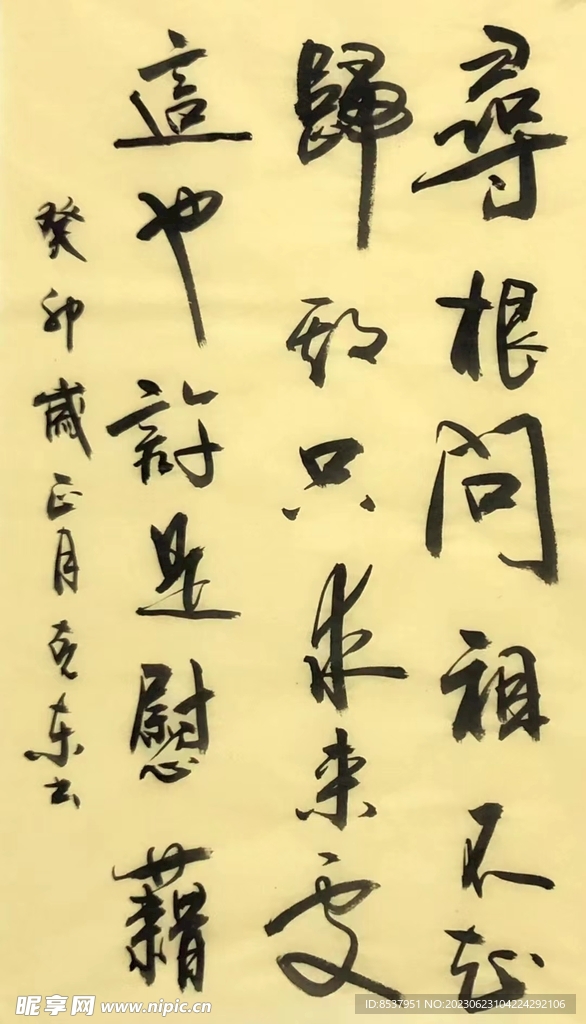 尋根問祖不起
歸期只求來處
這也許是慰藉
癸卯歲正月克东书
昵享网 www.nipic.cn
ID:8537951 NO:20230623104224292106